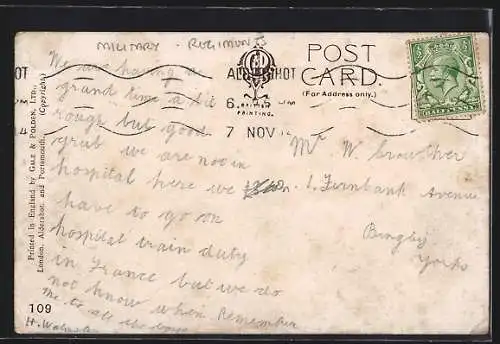 MILITARY - REGIMENTS
POST CARD.
(For Address only.)
ALDERSHOT
7 NOV 14
BRITISH
PRINTING.
HALFPENNY
Printed in England by GALE & POLDEN, LTD.,
London, Aldershot and Portsmouth.
(Copyright.)
109
We are having a
grand time a bit
rough but good
grub we are not in
hospital here we
have to go on
hospital train duty
in France but we do
not know when Remember
me to all the boys
H.
Mr W. Crowther
1. Fernbank Avenue
Bingley
Yorks